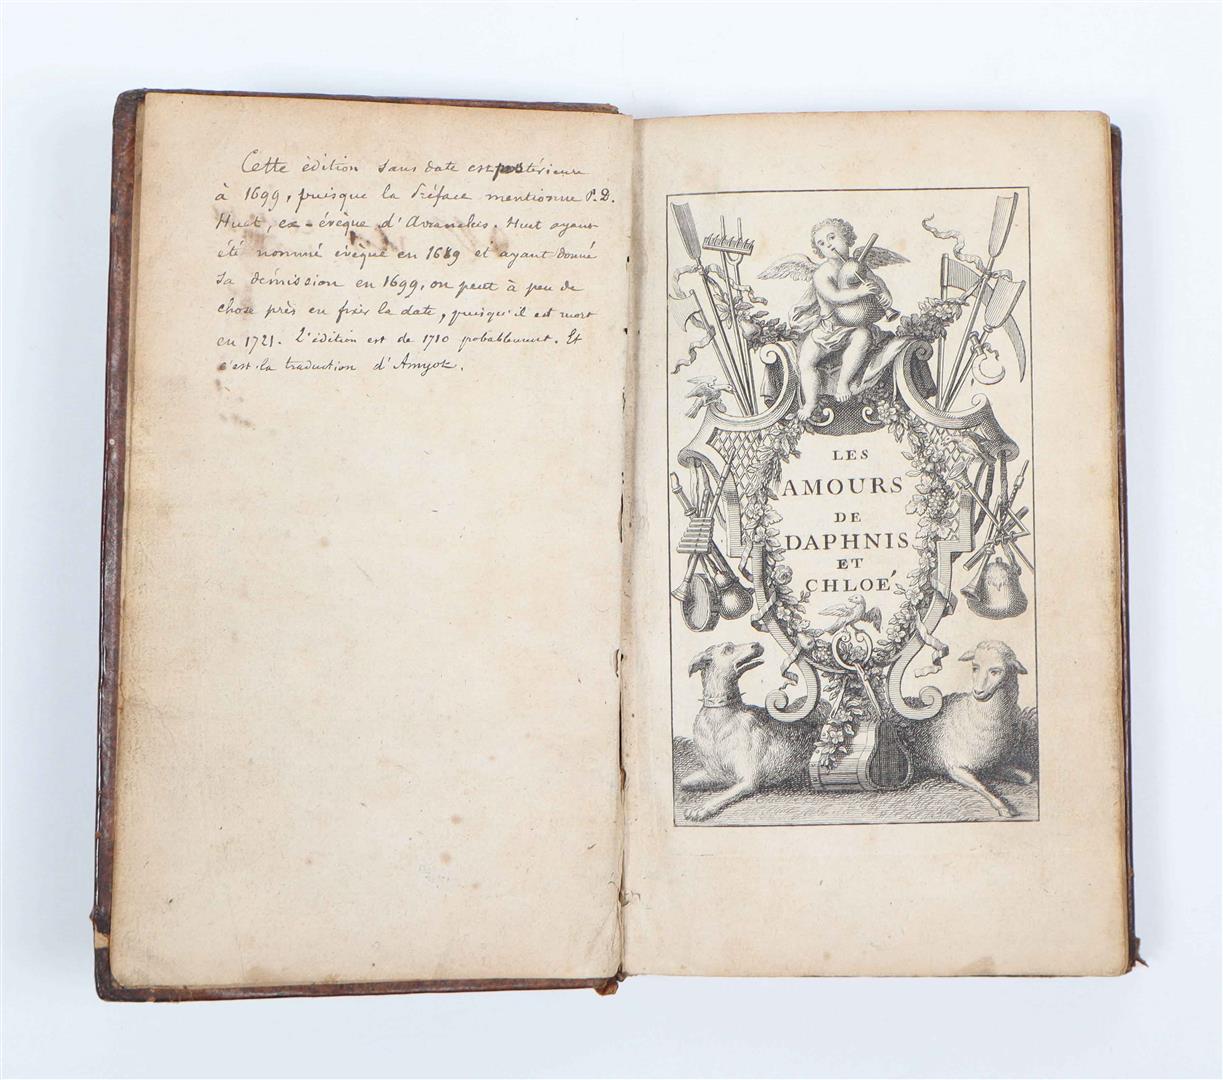 Cette édition sans date est postérieure
à 1699, puisque la Préface mentionne P. D.
Huet, ex-évêque d'Avranches. Huet ayant
été nommé évêque en 1689 et ayant donné
sa démission en 1699, on peut à peu de
chose près en fixer la date, puisqu'il est mort
en 1721. L'édition est de 1710 probablement. Et
c'est la traduction d'Amyot.
LES
AMOURS
DE
DAPHNIS
ET
CHLOÉ